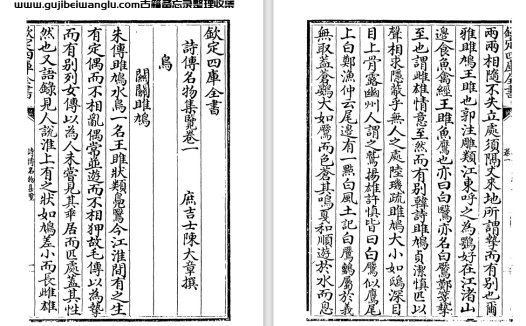 www.gujibeiwanglu.com古籍备忘录整理收集
欽定四庫全書
詩傳名物集覽卷一
庶吉士陳大章撰
鳥
關關雎鳩
朱傳雎鳩水鳥一名王雎狀類鳧鷖今江淮間有之生
有定偶而不相亂偶常並遊而不相狎故毛傳以為摯
而有别列女傳以為人未嘗見其乘居而匹處蓋其性
然也又語錄見人說淮上有之狀如鳩差小而長雌雄
欽定四庫全書
詩傳名物集覽
欽定四庫全書
卷一
兩兩相隨不失立處須隔丈來地所謂摯而有别也爾
雅雎鳩王雎也郭注雕類江東呼之為鶚好在江渚山
邊食魚禽經王雎魚鷹也亦曰白鷢亦名白鷹鄭箋摯
至也謂雌雄情意至然而有别韓詩雎鳩貞潔慎匹以
聲相求隱蔽乎無人之處陸璣疏雎鳩大小如鴟深目
目上骨露幽州人謂之鷲揚雄許慎皆曰白鷢似鷹尾
上白鄭漁仲云尾邊有一點白風土記白鷢鷂屬於義
無取蓋蒼鷃大如鷢而色蒼其鳴戞和順遊於水而息